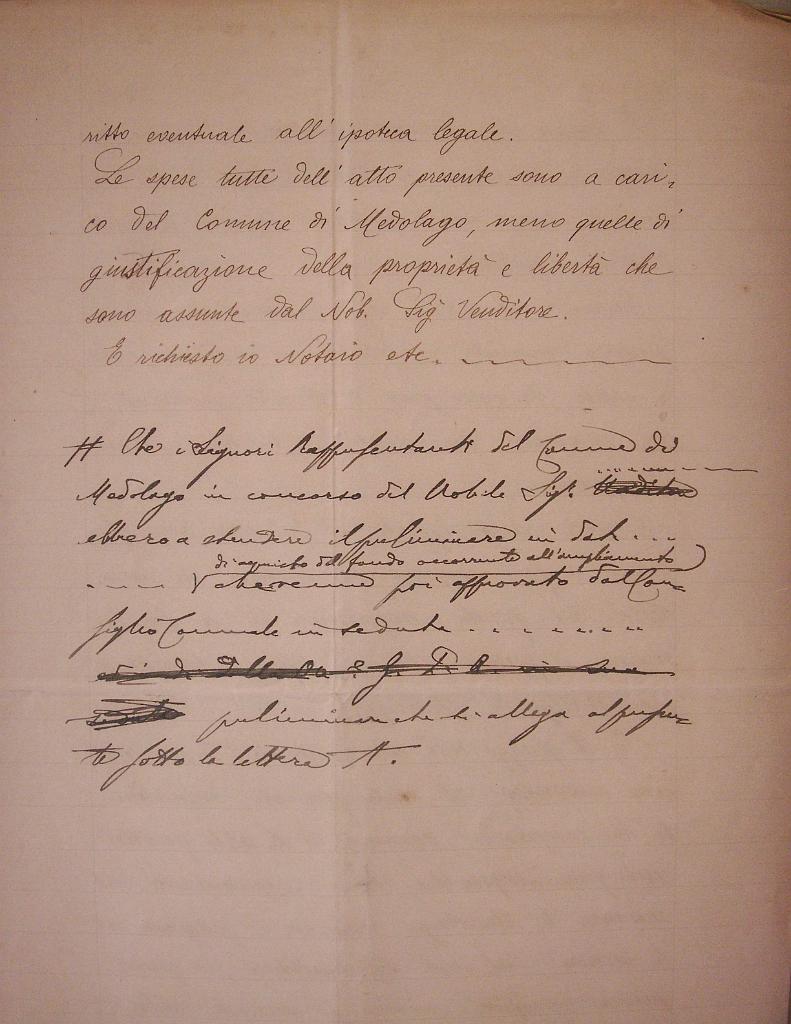 ritto eventuale all' ipoteca legale.
Le spese tutte dell' atto presente sono a cari,
co del Comune di Medolago, meno quelle di
giustificazione della proprietà e libertà che
sono assunte dal Nob. Sig Venditore.
E richiesto io Notaio etc.
# Che i Signori Rappresentanti del Comune di
Medolago in concorso del Nobile Sig.
ebbero a stendere il preliminare in dat...
di acquisto del fondo occorrente all'ampliamento
.... che venne poi approvato dal Con=
siglio Comunale in seduta ........
preliminare che si allega al presen=
te sotto la lettera A.